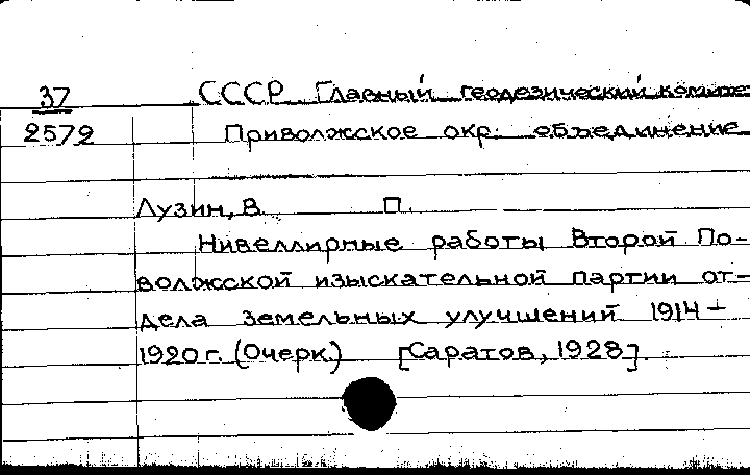 37 СССР Главный геодезический комите
2572 Приволжское окр. объединение
Лузин, В. П.
Нивеллирные работы Второй По-
волжской изыскательной партии от-
дела земельных улучшений 1914-
1920 г. (Очерк.) [Саратов, 1928].